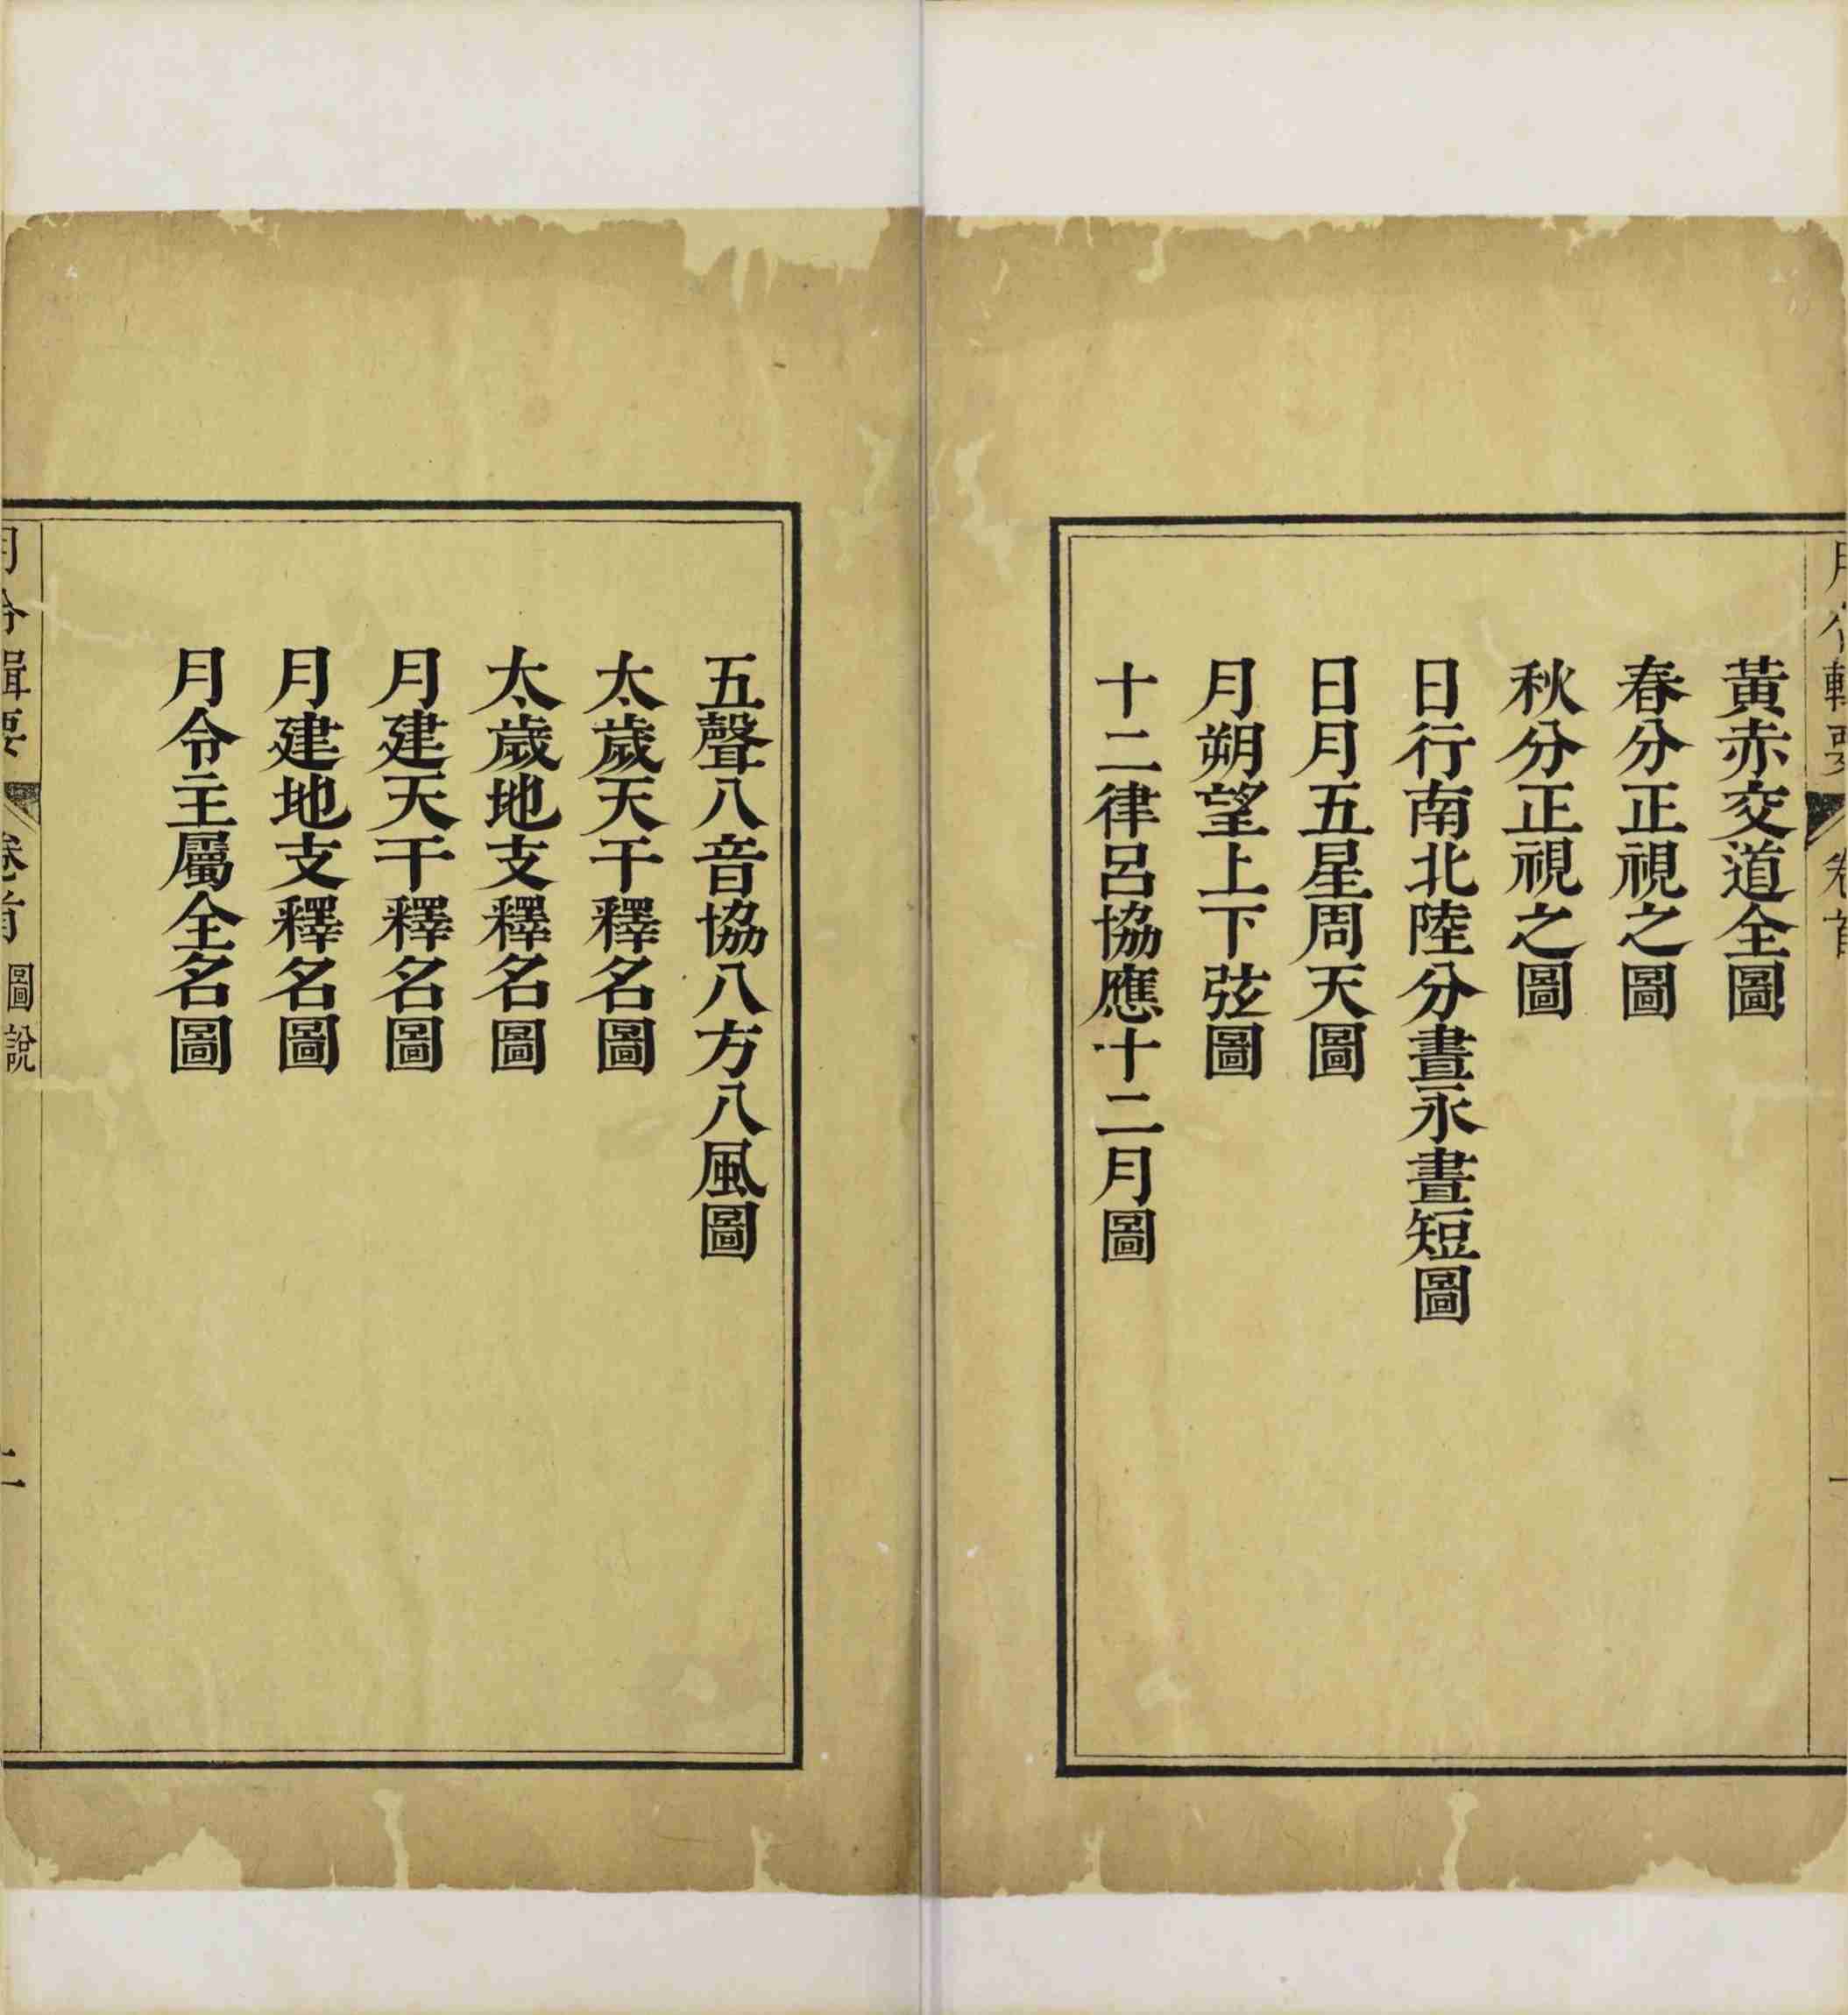 黃赤交道全圖
春分正視之圖
秋分正視之圖
日行南北陸分晝永晝短圖
日月五星周天圖
月朔望上下弦圖
十二律呂協應十二月圖
五聲八音協八方八風圖
太歲天干釋名圖
太歲地支釋名圖
月建天干釋名圖
月建地支釋名圖
月令主屬全名圖
月令輯要 卷首 圖說 二